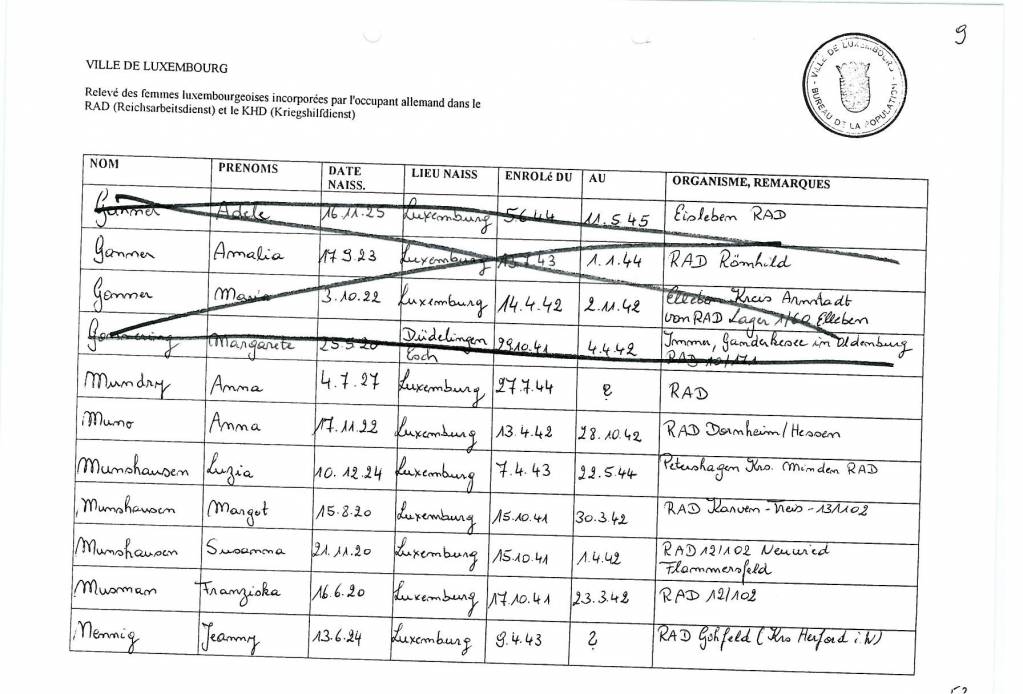 9
VILLE DE LUXEMBOURG
VILLE DE LUXEMBOURG
BUREAU DE LA POPULATION
Relevé des femmes luxembourgeoises incorporées par l'occupant allemand dans le
RAD (Reichsarbeitsdienst) et le KHD (Kriegshilfdienst)
NOM PRENOMS DATE NAISS. LIEU NAISS ENROLé DU AU ORGANISME, REMARQUES
Ganner Adele 16.11.25 Luxemburg 5.6.44 11.5.45 Eisleben RAD
Ganner Amalia 17.9.23 Luxemburg 43 1.1.44 RAD Römhild
Ganner Maria 3.10.22 Luxemburg 14.4.42 2.11.42 Elleben Kreis Arnstadt
von RAD Lager 1/60 Elleben
Margarete 25.5.20 Düdelingen Esch 29.10.41 4.4.42 Immer, Ganderkesee in Oldenburg
RAD 10/171
Mundry Anna 4.7.27 Luxemburg 27.7.44 ? RAD
Muno Anna 17.11.22 Luxemburg 13.4.42 28.10.42 RAD Dornheim/Hessen
Munshausen Luzia 10.12.24 Luxemburg 7.4.43 22.5.44 Petershagen Krs. Minden RAD
Munshausen Margot 15.8.20 Luxemburg 15.10.41 30.3.42 RAD Karven-Treis-131102
Munshausen Susanna 21.11.20 Luxemburg 15.10.41 1.4.42 RAD 12/102 Neuwied
Flammersfeld
Musman Franziska 16.6.20 Luxemburg 17.10.41 23.3.42 RAD 12/102
Nennig Jeanny 13.6.24 Luxemburg 9.4.43 ? RAD Gohfeld (Krs Herford i.W)